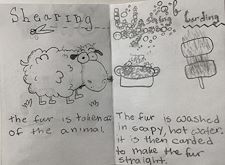 Shearing
the fur is taken
of the animal.
b
carding
The fur is washed
in soapy, hot water.
it is then carded
to make the fur
straight.